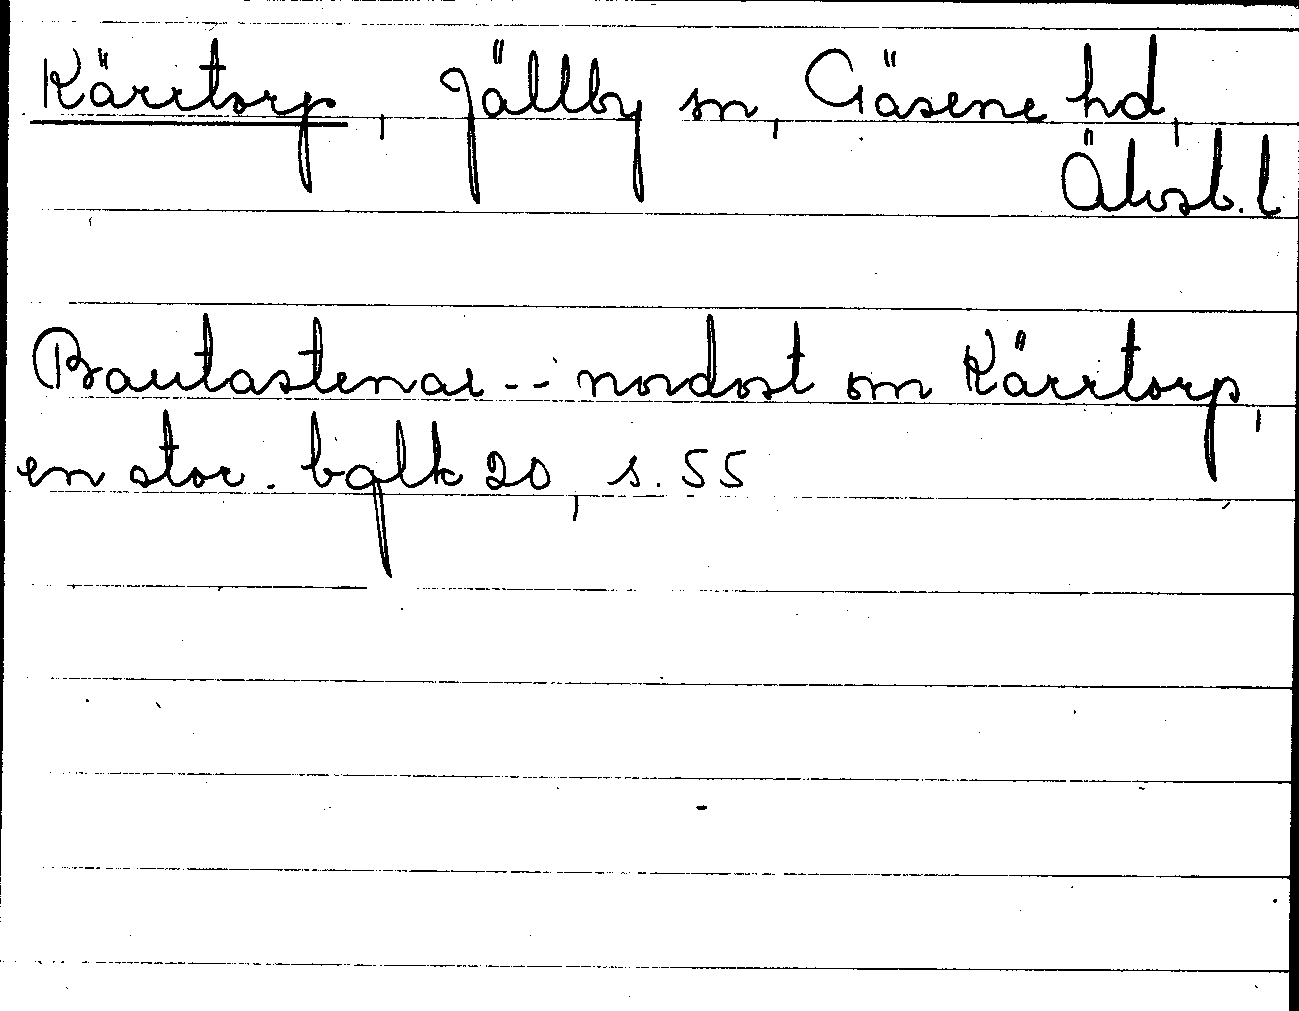 Kärrtorp, Jällby sn, Gäsene hd,
Älvsb. l
Bautastenar -- nordost om Kärrtorp,
en stor. bglk 20, s. 55